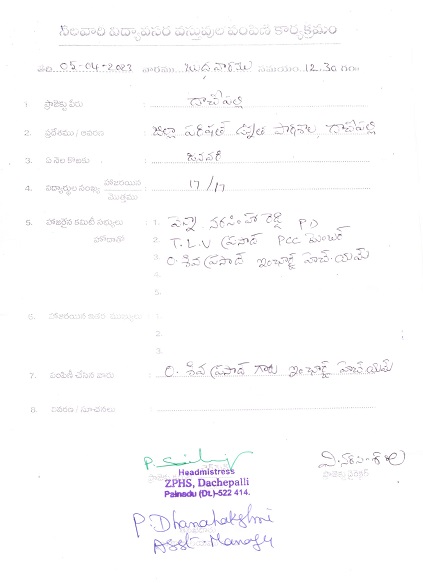 నెలవారి విద్యావసర వస్తువుల పంపిణి కార్యక్రమం
తేది. 05-04-2023 వారము బుధవారము సమయం 12.30 గం॥
1 ప్రాజెక్టు పేరు : దాచేపల్లి
2. ప్రదేశము / ఆవరణ : జిల్లా పరిషత్ ఉన్నత పాఠశాల, దాచేపల్లి
3. ఏ నెల కొరకు : జనవరి
4. విద్యార్థుల సంఖ్య హాజరయిన / మొత్తము : 17/17
5. హాజరైన కమిటీ సభ్యులు : 1. నరసింహారెడ్డి P.D
హోదాతో 2. T.L.V ప్రసాద్ PCC మెంబర్
3. O. శివ ప్రసాద్ ఇంఛార్జ్ హెచ్.యమ్
4.
5.
6. హాజరయిన ఇతర ముఖ్యులు : 1.
2.
3.
7. పంపిణీ చేసిన వారు : O. శివ ప్రసాద్ గారు ఇంఛార్జ్ హెచ్.యమ్
8. వివరణ / సూచనలు :
Headmistress
ZPHS, Dachepalli
Palnadu (Dt.)-522 414.
P. Dhanalakshmi
Asst-Manager